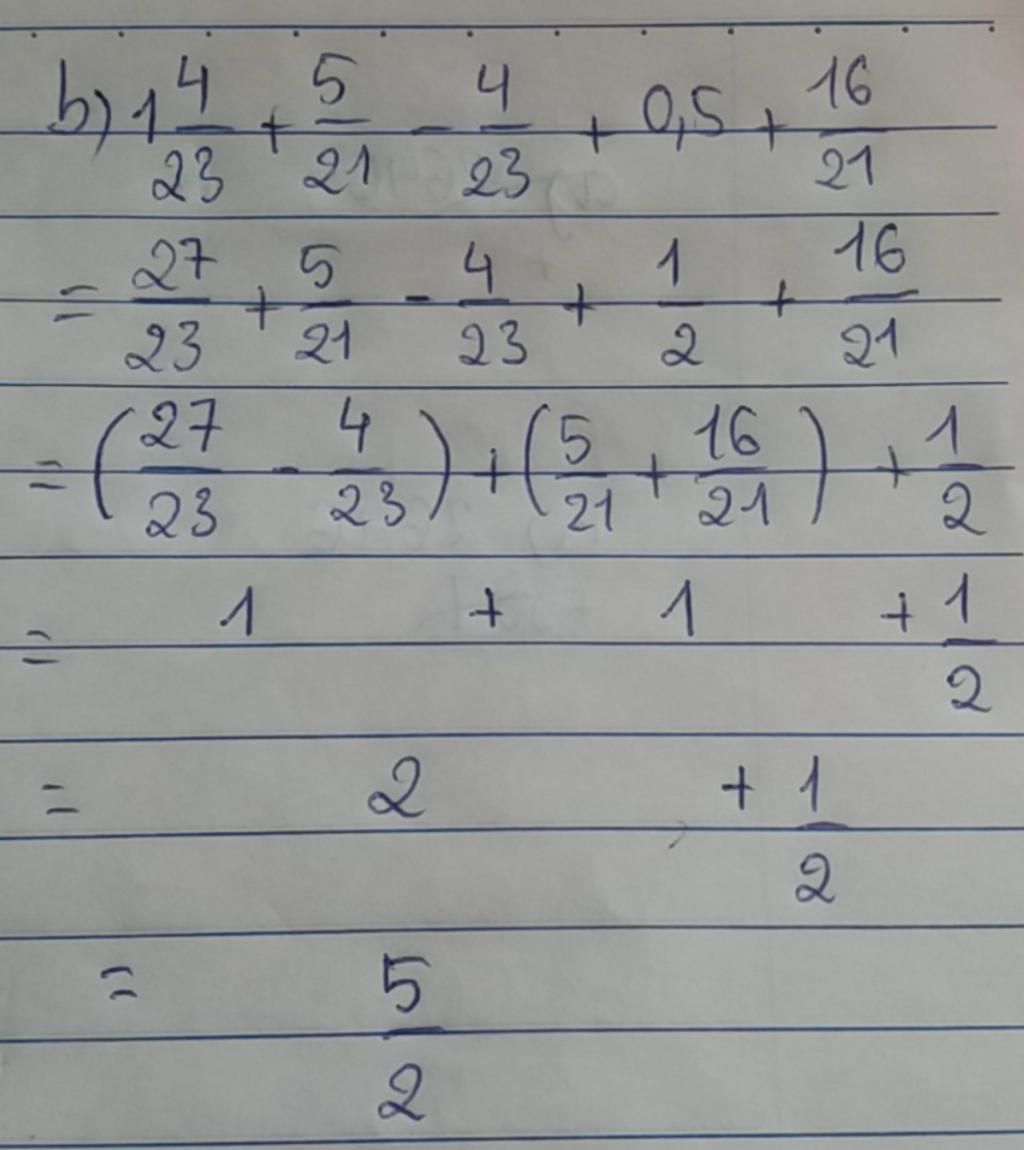 b) 1 4/23 + 5/21 - 4/23 + 0,5 + 16/21
= 27/23 + 5/21 - 4/23 + 1/2 + 16/21
= (27/23 - 4/23) + (5/21 + 16/21) + 1/2
= 1 + 1 + 1/2
= 2 + 1/2
= 5/2